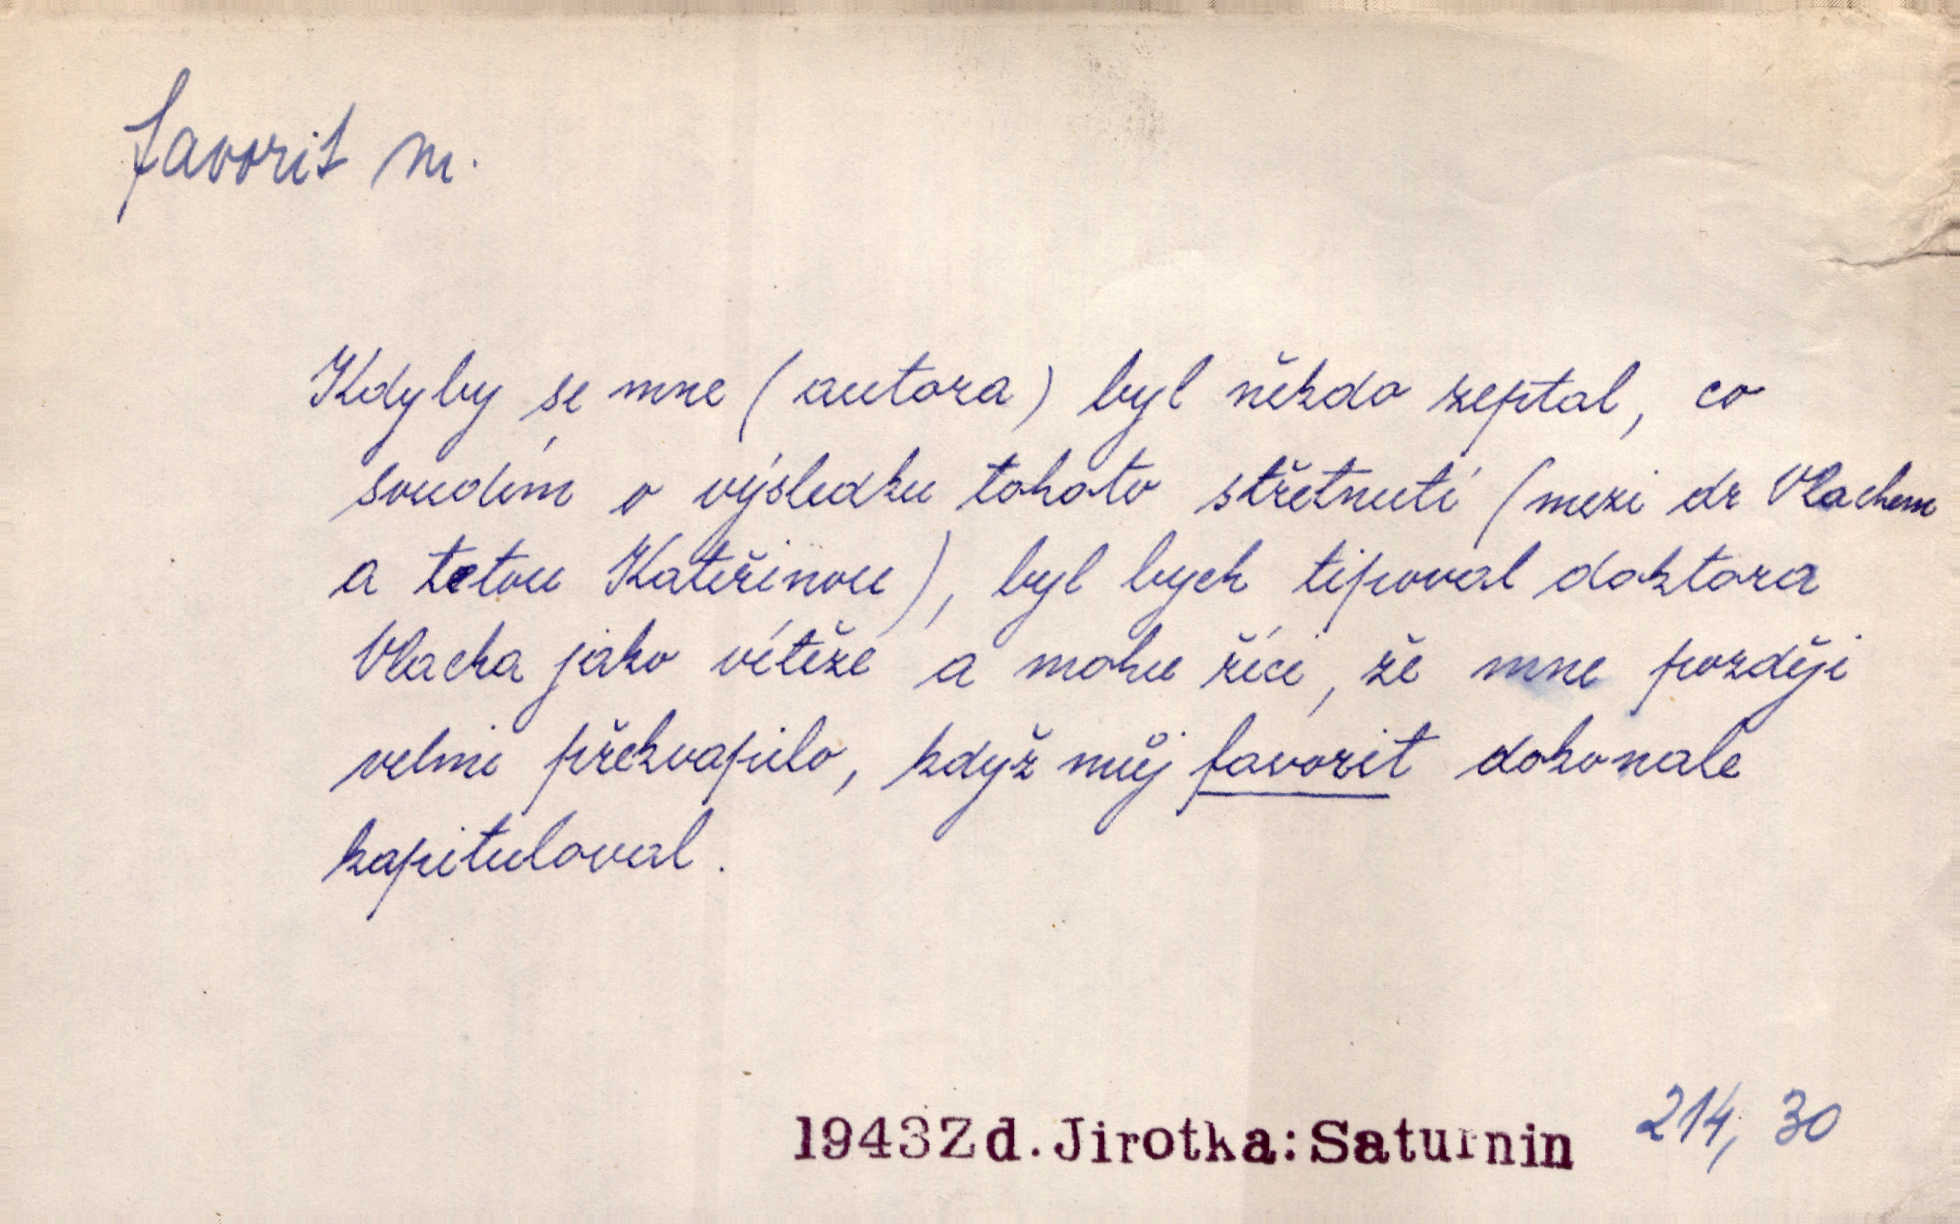 favorit m.
Kdyby se mne (autora) byl někdo zeptal, co
soudím o výsledku tohoto střetnutí (mezi dr Vlachem
a tetou Kateřinou), byl bych tipoval doktora
Vlacha jako vítěze a mohu říci, že mne později
velmi překvapilo, když můj favorit dokonale
kapituloval.
1943 Zd. Jirotka: Saturnin 214, 30